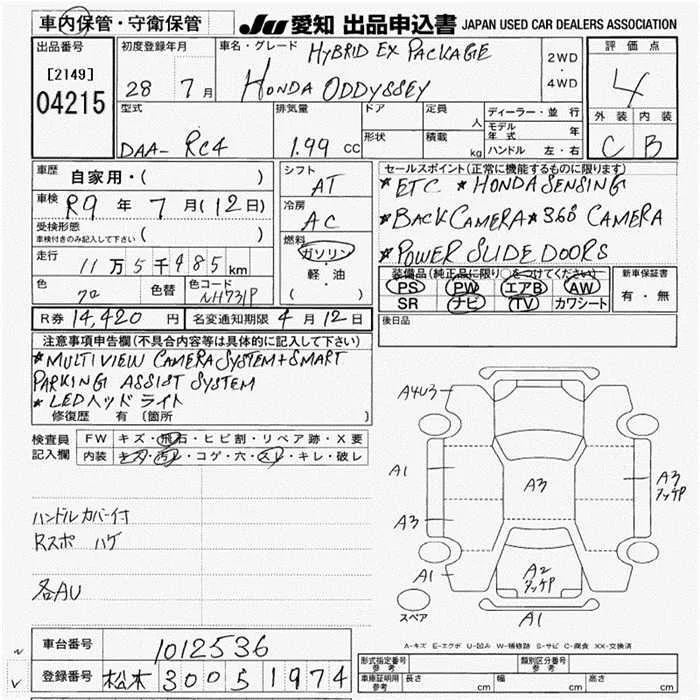 車内保管・守衛保管 JU 愛知 出品申込書 JAPAN USED CAR DEALERS ASSOCIATION
出品番号 [2149] 04215
初度登録年月 28 7月
車名・グレード HYBRID EX PACKAGE
HONDA ODDYSSEY
2WD ・ 4WD
評価点 4
外装 C 内装 B
型式 DAA- RC4
排気量 1.99 CC
ドア 形状
定員 人 積載 kg
ディーラー・並行
モデル年式 年
ハンドル 左・右
車歴 自家用・( )
車検 R9 年 7 月(12日)
受検形態 車検付きのみ記入して下さい ( )
走行 11万5千485km
色 色替 色コード NH731P
シフト AT
冷房 AC
燃料 ガソリン・軽・油 ( )
セールスポイント(正常に機能するものに限ります)
* ETC * HONDA SENSING
* BACK CAMERA * 360° CAMERA
* POWER SLIDE DOORS
装備品(純正品に限り○をつけてください)
PS PW エアB AW
SR ナビ TV カワシート
新車保証書 有・無
R券 14,420 円 名変通知期限 4月12日
後日品
注意事項申告欄(不具合内容等は具体的に記入して下さい)
* MULTIVIEW CAMERA SYSTEM + SMART
PARKING ASSIST SYSTEM
* LEDヘッドライト
修復歴 有 〔箇所 〕
検査員記入欄 FW キズ・飛石・ヒビ割・リペア跡・X要
内装 キズ・汚レ・コゲ・穴・スレ・キレ・破レ
A4U3
A1
A3
A3
A3
アッケP
A1
A2
アッケP
A1
スペア
ハンドルカバー付
Rスポ ハゲ
各AU
A-キズ E-エクボ U-凹み W-補修跡 S-サビ C-腐食 XX-交換済
車台番号 1012536
登録番号 松本 300 5 1974
形式指定番号 参考 類別区分番号 参考
車庫証明用 参考 長さ cm 幅 cm 高さ cm